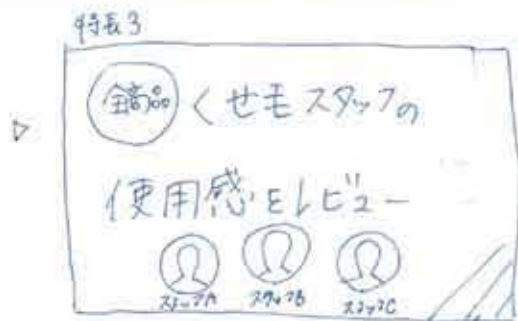 特長3
くせ毛スタッフの
使用感をレビュー
スタッフA スタッフB スタッフC